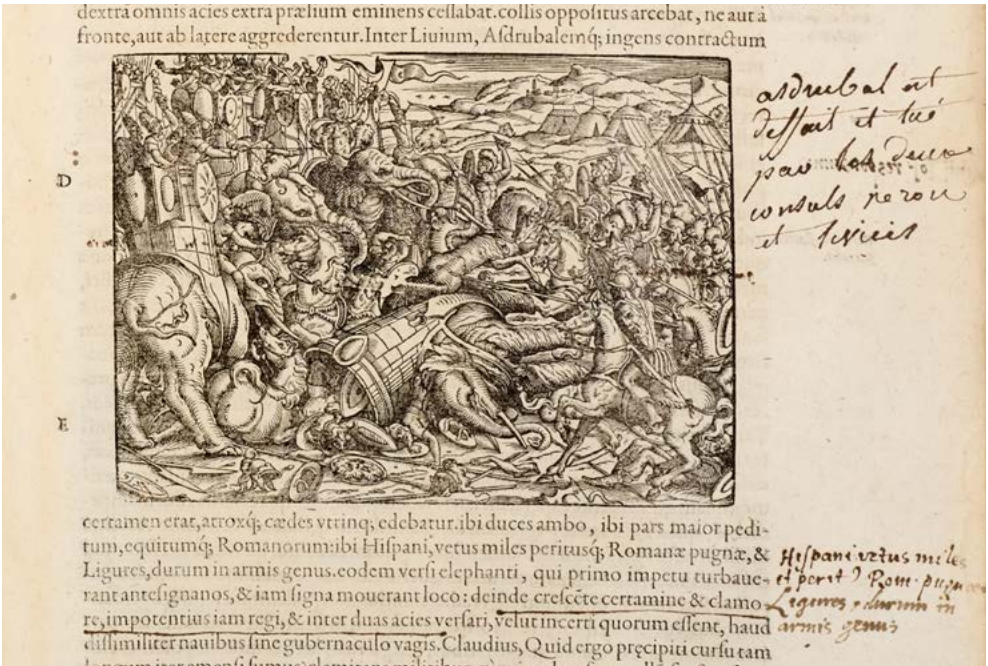 dextra omnis acies extra prælium eminens ceſſabat. collis oppoſitus arcebat, ne aut à
fronte, aut ab latere aggrederentur. Inter Liuium, Aſdrubalemq; ingens contractum
D
E
asdrubal est
deffait et tué
par les deux
consuls neron
et
certamen erat, atroxq; cædes vtrinq; edebatur. ibi duces ambo, ibi pars maior pedi-
tum, equitumq; Romanorum: ibi Hiſpani, vetus miles peritusq; Romanæ pugnæ, &
Ligures, durum in armis genus. eodem verſi elephanti, qui primo impetu turbaue-
rant anteſignanos, & iam ſigna mouerant loco: deinde creſcēte certamine & clamo
re, impotentius iam regi, & inter duas acies verſari, velut incerti quorum eſſent, haud
diſſimiliter nauibus ſine gubernaculo vagis. Claudius, Quid ergo pręcipiti curſu tam
Hiſpani vetus miles
et perit9 Rom. pugnæ
Ligures, durum in
armis genus